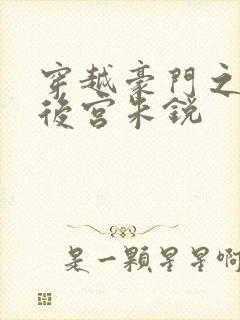 穿越豪門之
後宮朱銳
是一顆星星啊